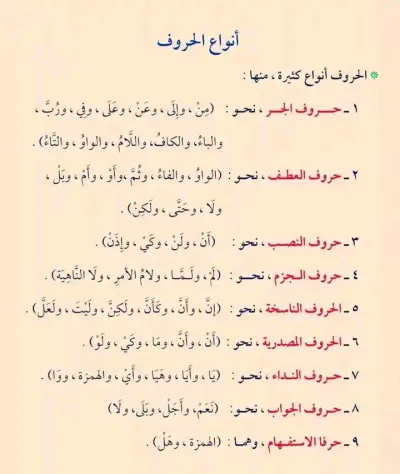 أنواع الحروف
* الحروف أنواع كثيرة ، منها :
١ ـ حـــروف الجـر ، نحـو : (مِنْ ، وإِلَى ، وعَنْ ، وعَلَى ، وفِي ، ورُبَّ ،
والباءُ، والكافُ، واللَّامُ ، والواوُ ، والتَّاءُ) .
٢ ـ حروف العطـف ، نحـو : (الواوُ ، والفاءُ ، وثُمَّ ،وأَوْ ، وأَمْ ، وبَلْ ،
ولَا ، وحَتَّى ، ولَكِنْ) .
٣ ـ حروف النصـب ، نحو : (أَنْ ، ولَنْ ، وكَيْ ، وإِذَنْ) .
٤ ـ حروف الـجزم ، نحـــو : (لَمْ ، ولَـمَّـا ، ولامُ الأمرِ ، ولَا النَّاهِيَة) .
٥ ـ الحروف الناسخة ، نحو : (إِنَّ ، وأَنَّ ، وكَأَنَّ ، ولَكِنَّ ، ولَيْتَ ، ولَعَلَّ) .
٦ ـ الحروف المصدرية ، نحو : (أَنْ ، وأَنَّ ، ومَا ، وكَيْ ، ولَوْ) .
٧ ـ حروف النـداء ، نحـو : (يَا ، وأَيَا ، وهَيَا ، وأَيْ ، والهمزة ، ووَا) .
٨ ـ حروف الجواب ، نحـو : (نَعَمْ، وأَجَلْ ، وبَلَى ، ولَا)
٩ ـ حرفا الاستفهـام ، وهمـا : (الهمزة ، وهَلْ) .